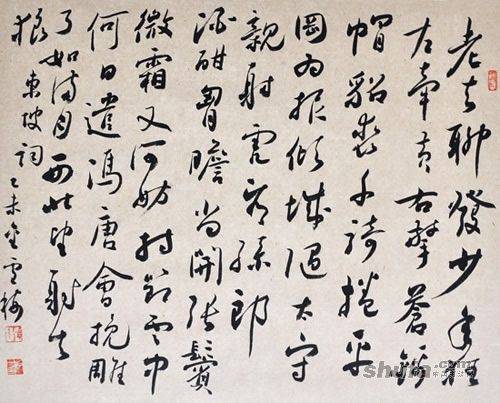 老夫聊發少年狂
左牽黃右擎蒼錦
帽貂裘千騎捲平
岡為報傾城隨太守
親射虎看孫郎
酒酣胸膽尚開張鬢
微霜又何妨持節雲中
何日遣馮唐會挽雕
弓如滿月西北望射天
狼 東坡詞 乙未雪梅